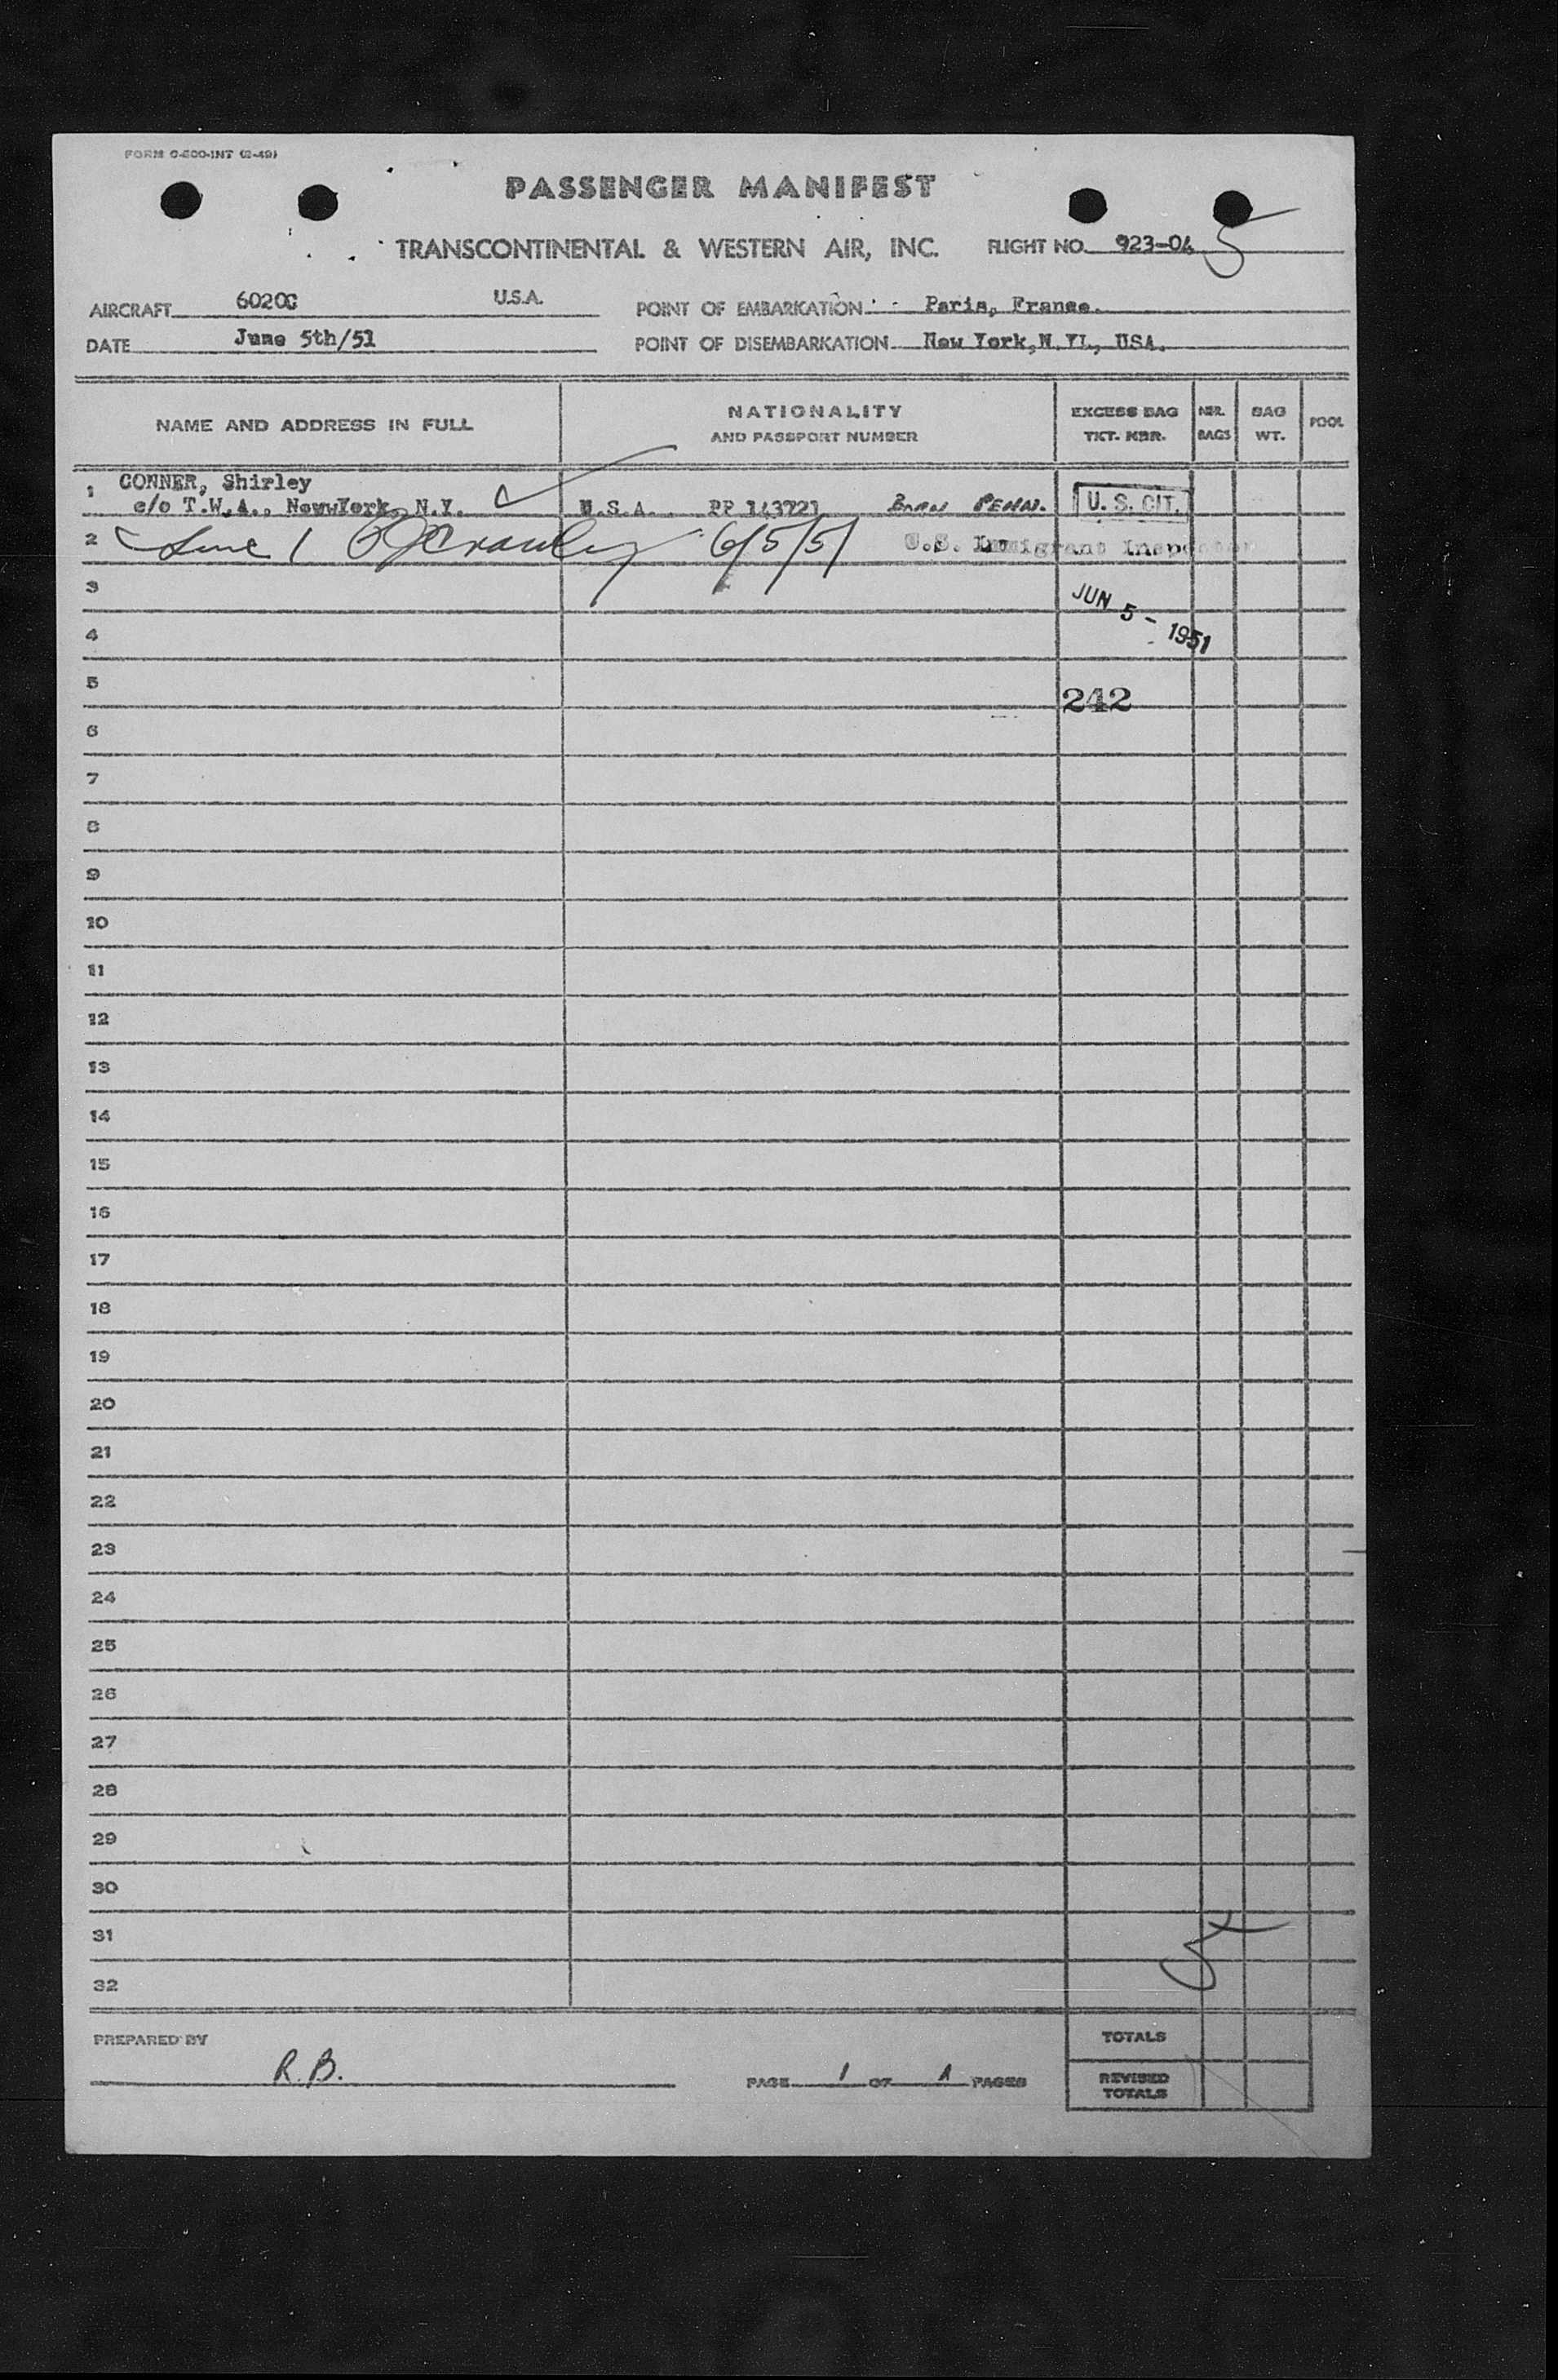 FORM O-800-INT (2-49)
PASSENGER MANIFEST
TRANSCONTINENTAL & WESTERN AIR, INC. FLIGHT NO. 923-04 5
AIRCRAFT 6020C U.S.A. POINT OF EMBARKATION Paris, France.
DATE June 5th/51 POINT OF DISEMBARKATION New York,N.YI., USA.
NAME AND ADDRESS IN FULL
NATIONALITY
AND PASSPORT NUMBER
EXCESS BAG
TKT. NBR.
NBR.
BAGS
BAG
WT.
POOL
1 CONNER, Shirley
c/o T.W.A., NewwYork, N.Y. U.S.A. PP 143721 BORN PENN. U.S. CIT.
2 Line 1 Crawley 6/5/51 U.S. Immigrant Inspector
3
JUN 5 - 1951
4
5 242
6
7
8
9
10
11
12
13
14
15
16
17
18
19
20
21
22
23
24
25
26
27
28
29
30
31
32
PREPARED BY R.B.
PAGE 1 OF 1 PAGES
TOTALS
REVISED
TOTALS